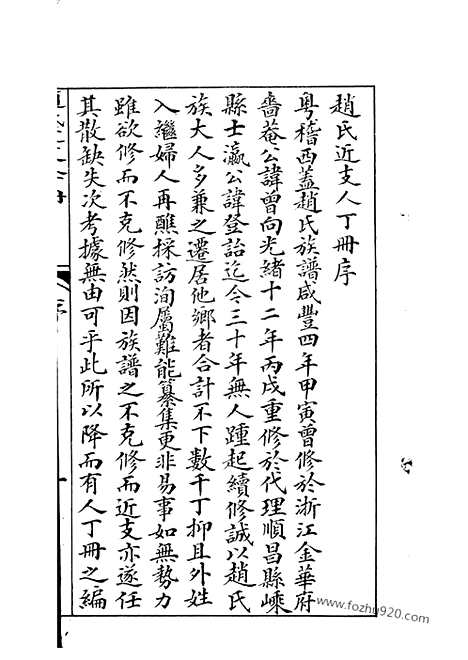 趙氏近支人丁冊序
粵稽西蓋趙氏族譜咸豐四年甲寅曾修於浙江金華府
嗇菴公諱曾向光緒十二年丙戌重修於代理順昌縣嵊
縣士瀛公諱登詒迄今三十年無人踵起續修誠以趙氏
族大人多兼之遷居他鄉者合計不下數千丁抑且外姓
入繼婦人再醮採訪洵屬難能纂集更非易事如無勢力
雖欲修而不克修然則因族譜之不克修而近支亦遂任
其散缺失次考據無由可乎此所以降而有人丁冊之編
序
www.fozhu920.com